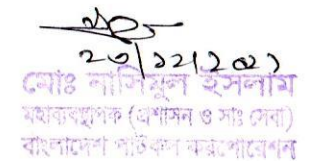 ২০/১২/২০২১
মোঃ নাসিমুল ইসলাম
মহাব্যবস্থাপক (প্রশাসন ও সাঃ সেবা)
বাংলাদেশ পাটকল করপোরেশন